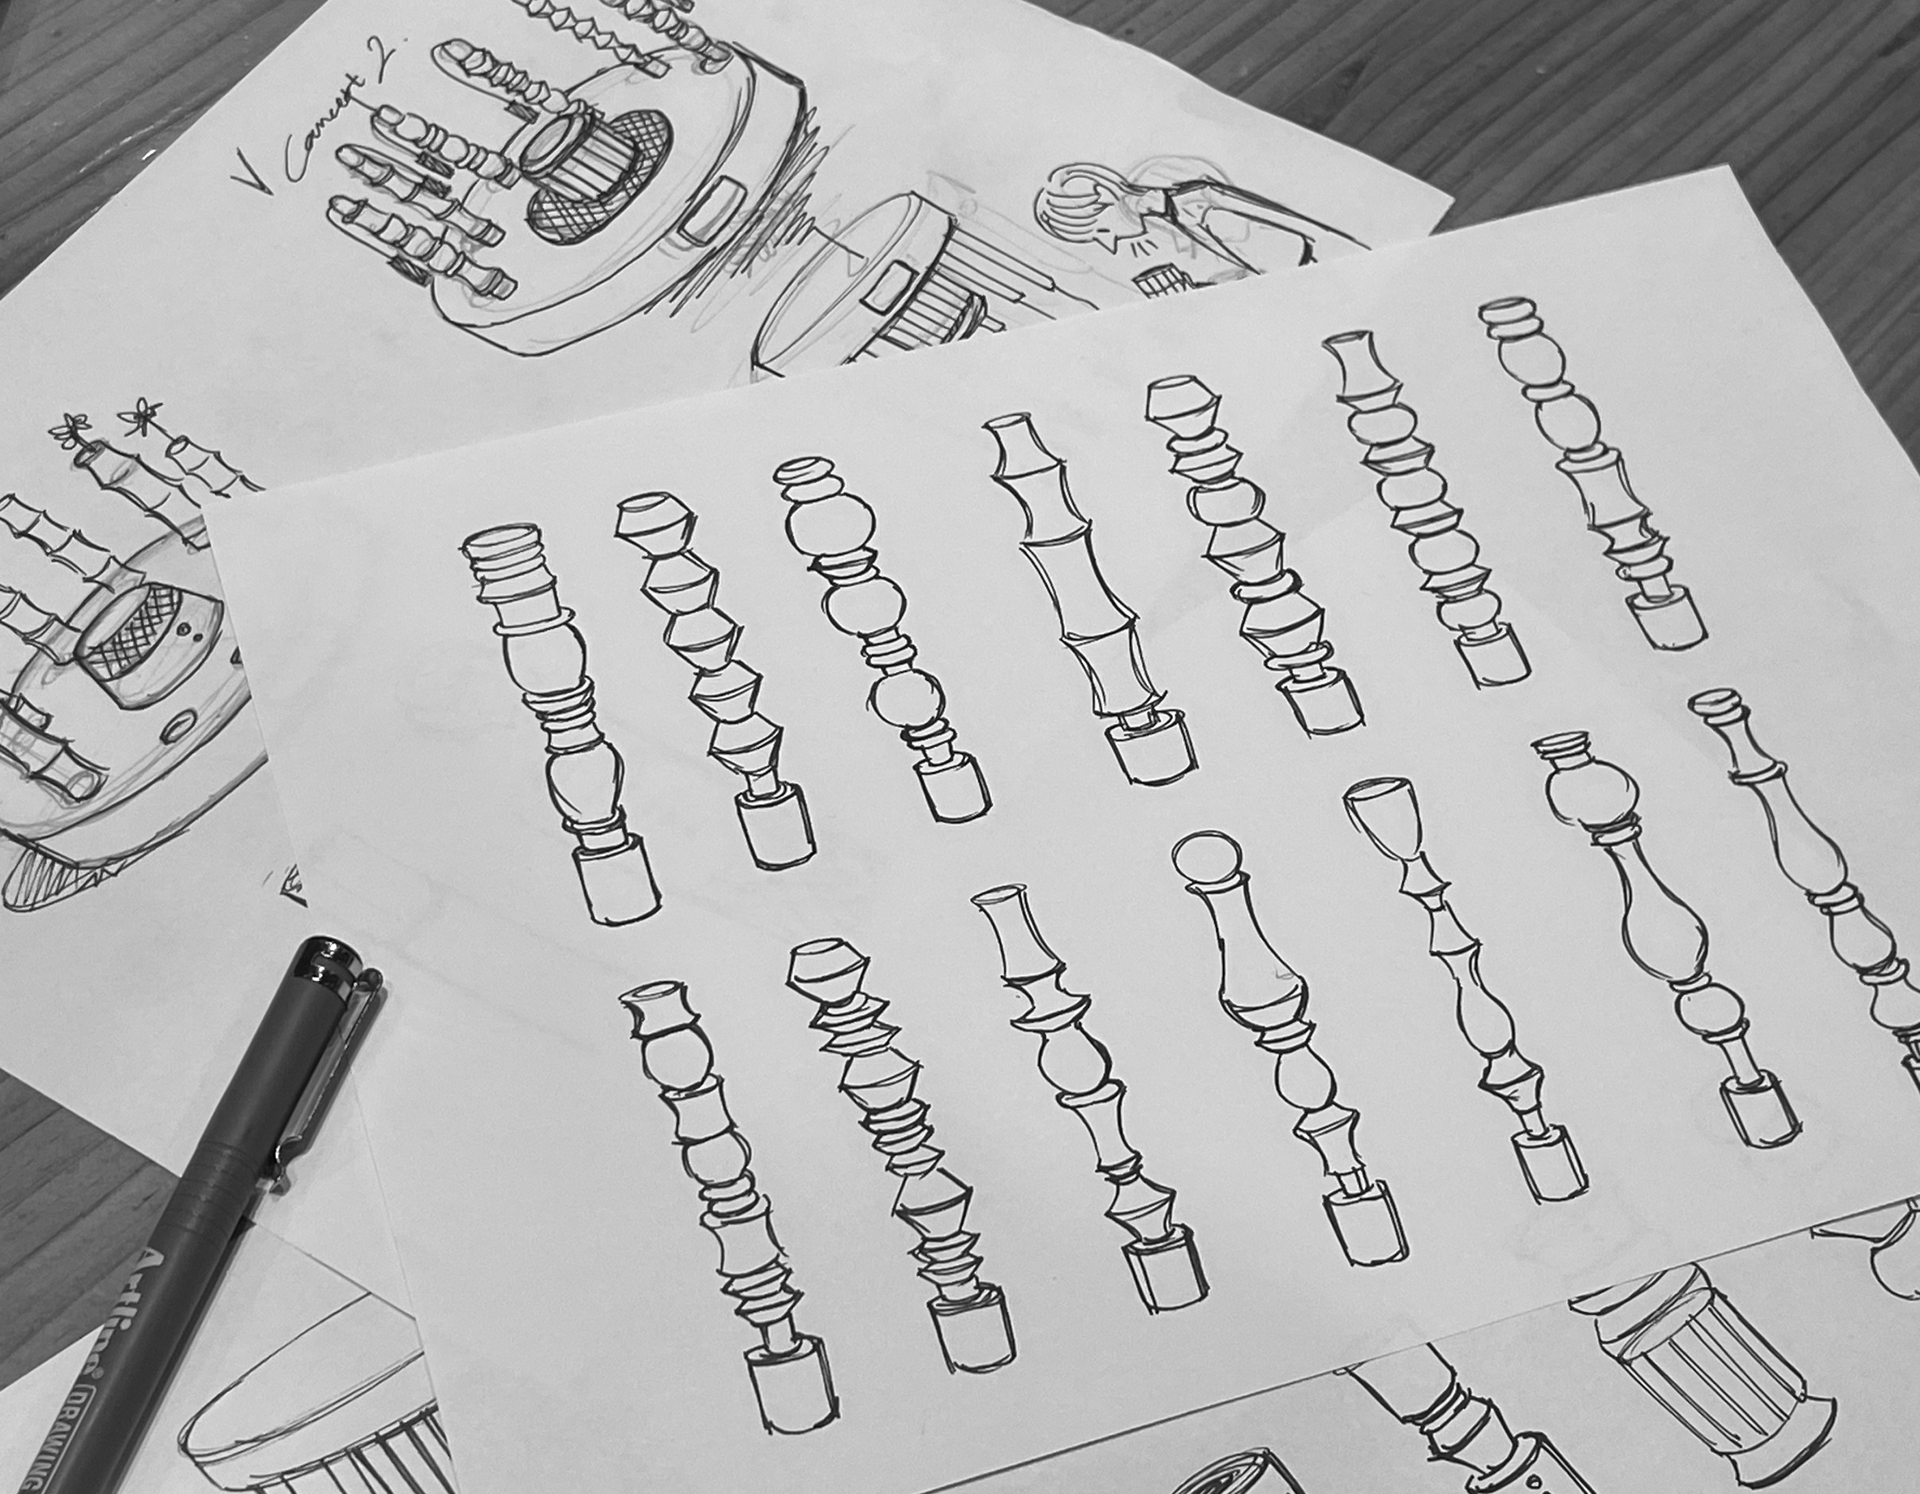 V Concept 2.
Artline® DRAWING